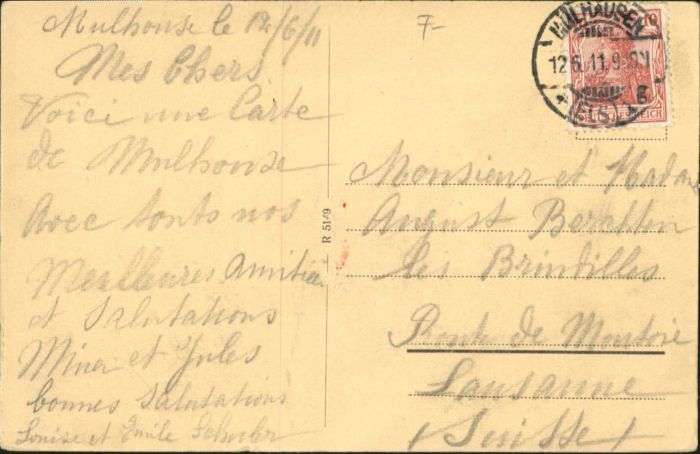 Mulhouse le 12/6/11
Mes Chers
Voici une Carte
de Mulhouse
Avec touts nos
Meilleures Amitiés
et Salutations
Mina et Jules
bonnes Salutations
Louise et Emile
7-
R 51/9
MÜLHAUSEN
12.6.11.9
(ELS.)
10
Monsieur et Madame
August
Les Brindilles
Route de Montoie
Lausanne
Suisse